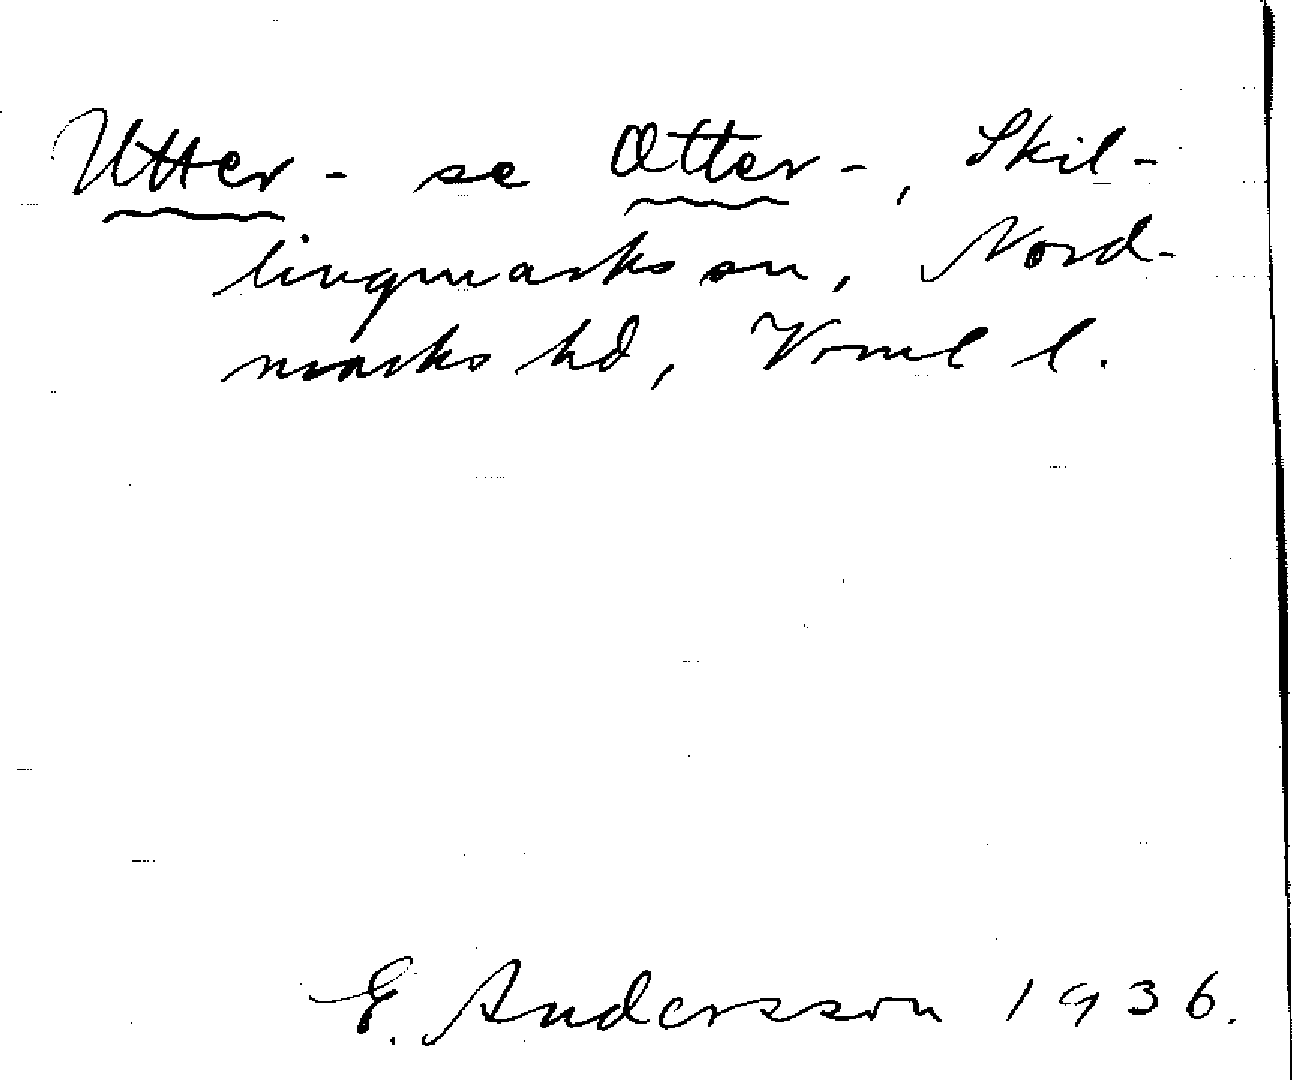 Utter- se Otter-, Skil-
lingmarks sn, Nord-
marks hd, Vrml l.
E. Andersson 1936.